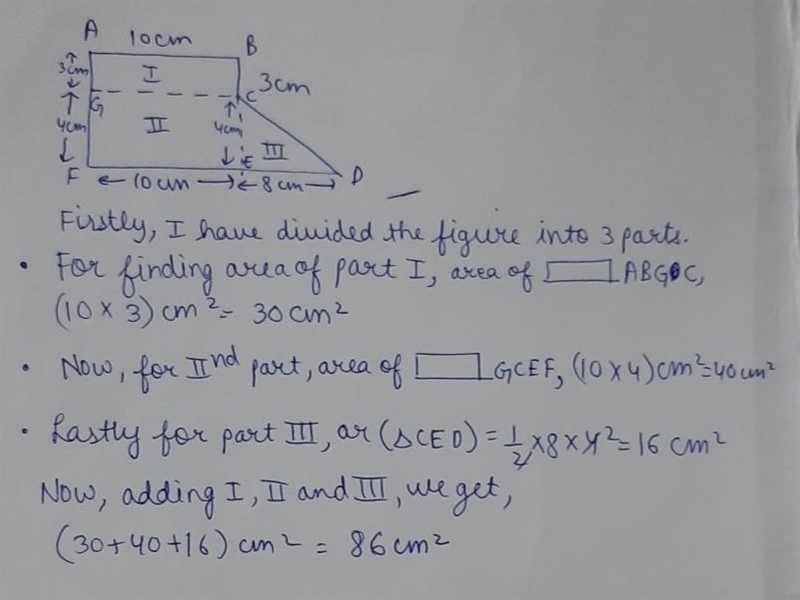 A
10cm
B
3cm
I
3cm
G
C
4cm
II
4cm
III
E
F
10cm
8cm
D
Firstly, I have divided the figure into 3 parts.
• For finding area of part I, area of ▭ ABGC,
(10 × 3) cm² = 30 cm²
• Now, for IInd part, area of ▭ GCEF, (10 × 4) cm² = 40 cm²
• Lastly for part III, ar (ΔCED) = 1/2 × 8 × 4 2 = 16 cm²
Now, adding I, II and III, we get,
(30+40+16) cm² = 86 cm²